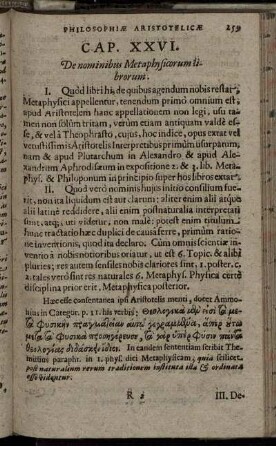 PHILOSOPHIÆ ARISTOTELICÆ 259
CAP. XXVI.
De nominibus Metaphysicorum li-
brorum.
I. Quòd libri hi, de quibus agendum nobis restat,
Metaphysici appellentur, tenendum primò omnium est,
apud Aristotelem hanc appellationem non legi, usu ta-
men non solùm tritam, verùm etiam antiquam valdè es-
se, & vel à Theophrasto, cujus, hoc indice, opus extat vel
vetustissimis Aristotelis Interpretibus primùm usurpatam,
tum & apud Plutarchum in Alexandro & apud Ale-
xandrum Aphrodisæum in expositione 2. & 3. lib. Meta-
phys. & Philoponum in principio super hos libros extat.
II. Quod verò nominis hujus initio consilium fue-
rit, non ita liquidum est aut clarum: aliter enim alii atque
alii latinè reddidere, alii enim postnaturalia interpretati
sunt, atq; uti videtur, non malè: potest enim titulum
hunc tractatio hæc duplici de causa ferre, primùm ratio-
ne inventionis, quod ita declaro: Cùm omnis scientiæ in-
ventio à nobis notioribus oriatur, ut est 6. Topic. & alibi
pluries; res autem sensiles nobis clariores sint, 1. poster. c.
2. tales verò sint res naturales 6. Metaphys. Physica certè
disciplina prior erit, Metaphysica posterior.
Hæc esse consentanea ipsi Aristotelis menti, docet Ammo-
nius in Categor. p. 11. his verbis;
In eandem sententiam scribit The-
mistius paraphr. in 1. phys. dici Metaphysicam; quia scilicet
post naturalium rerum traditionem instituta illa & ordinata
esse videtur.
R 2 III. De-